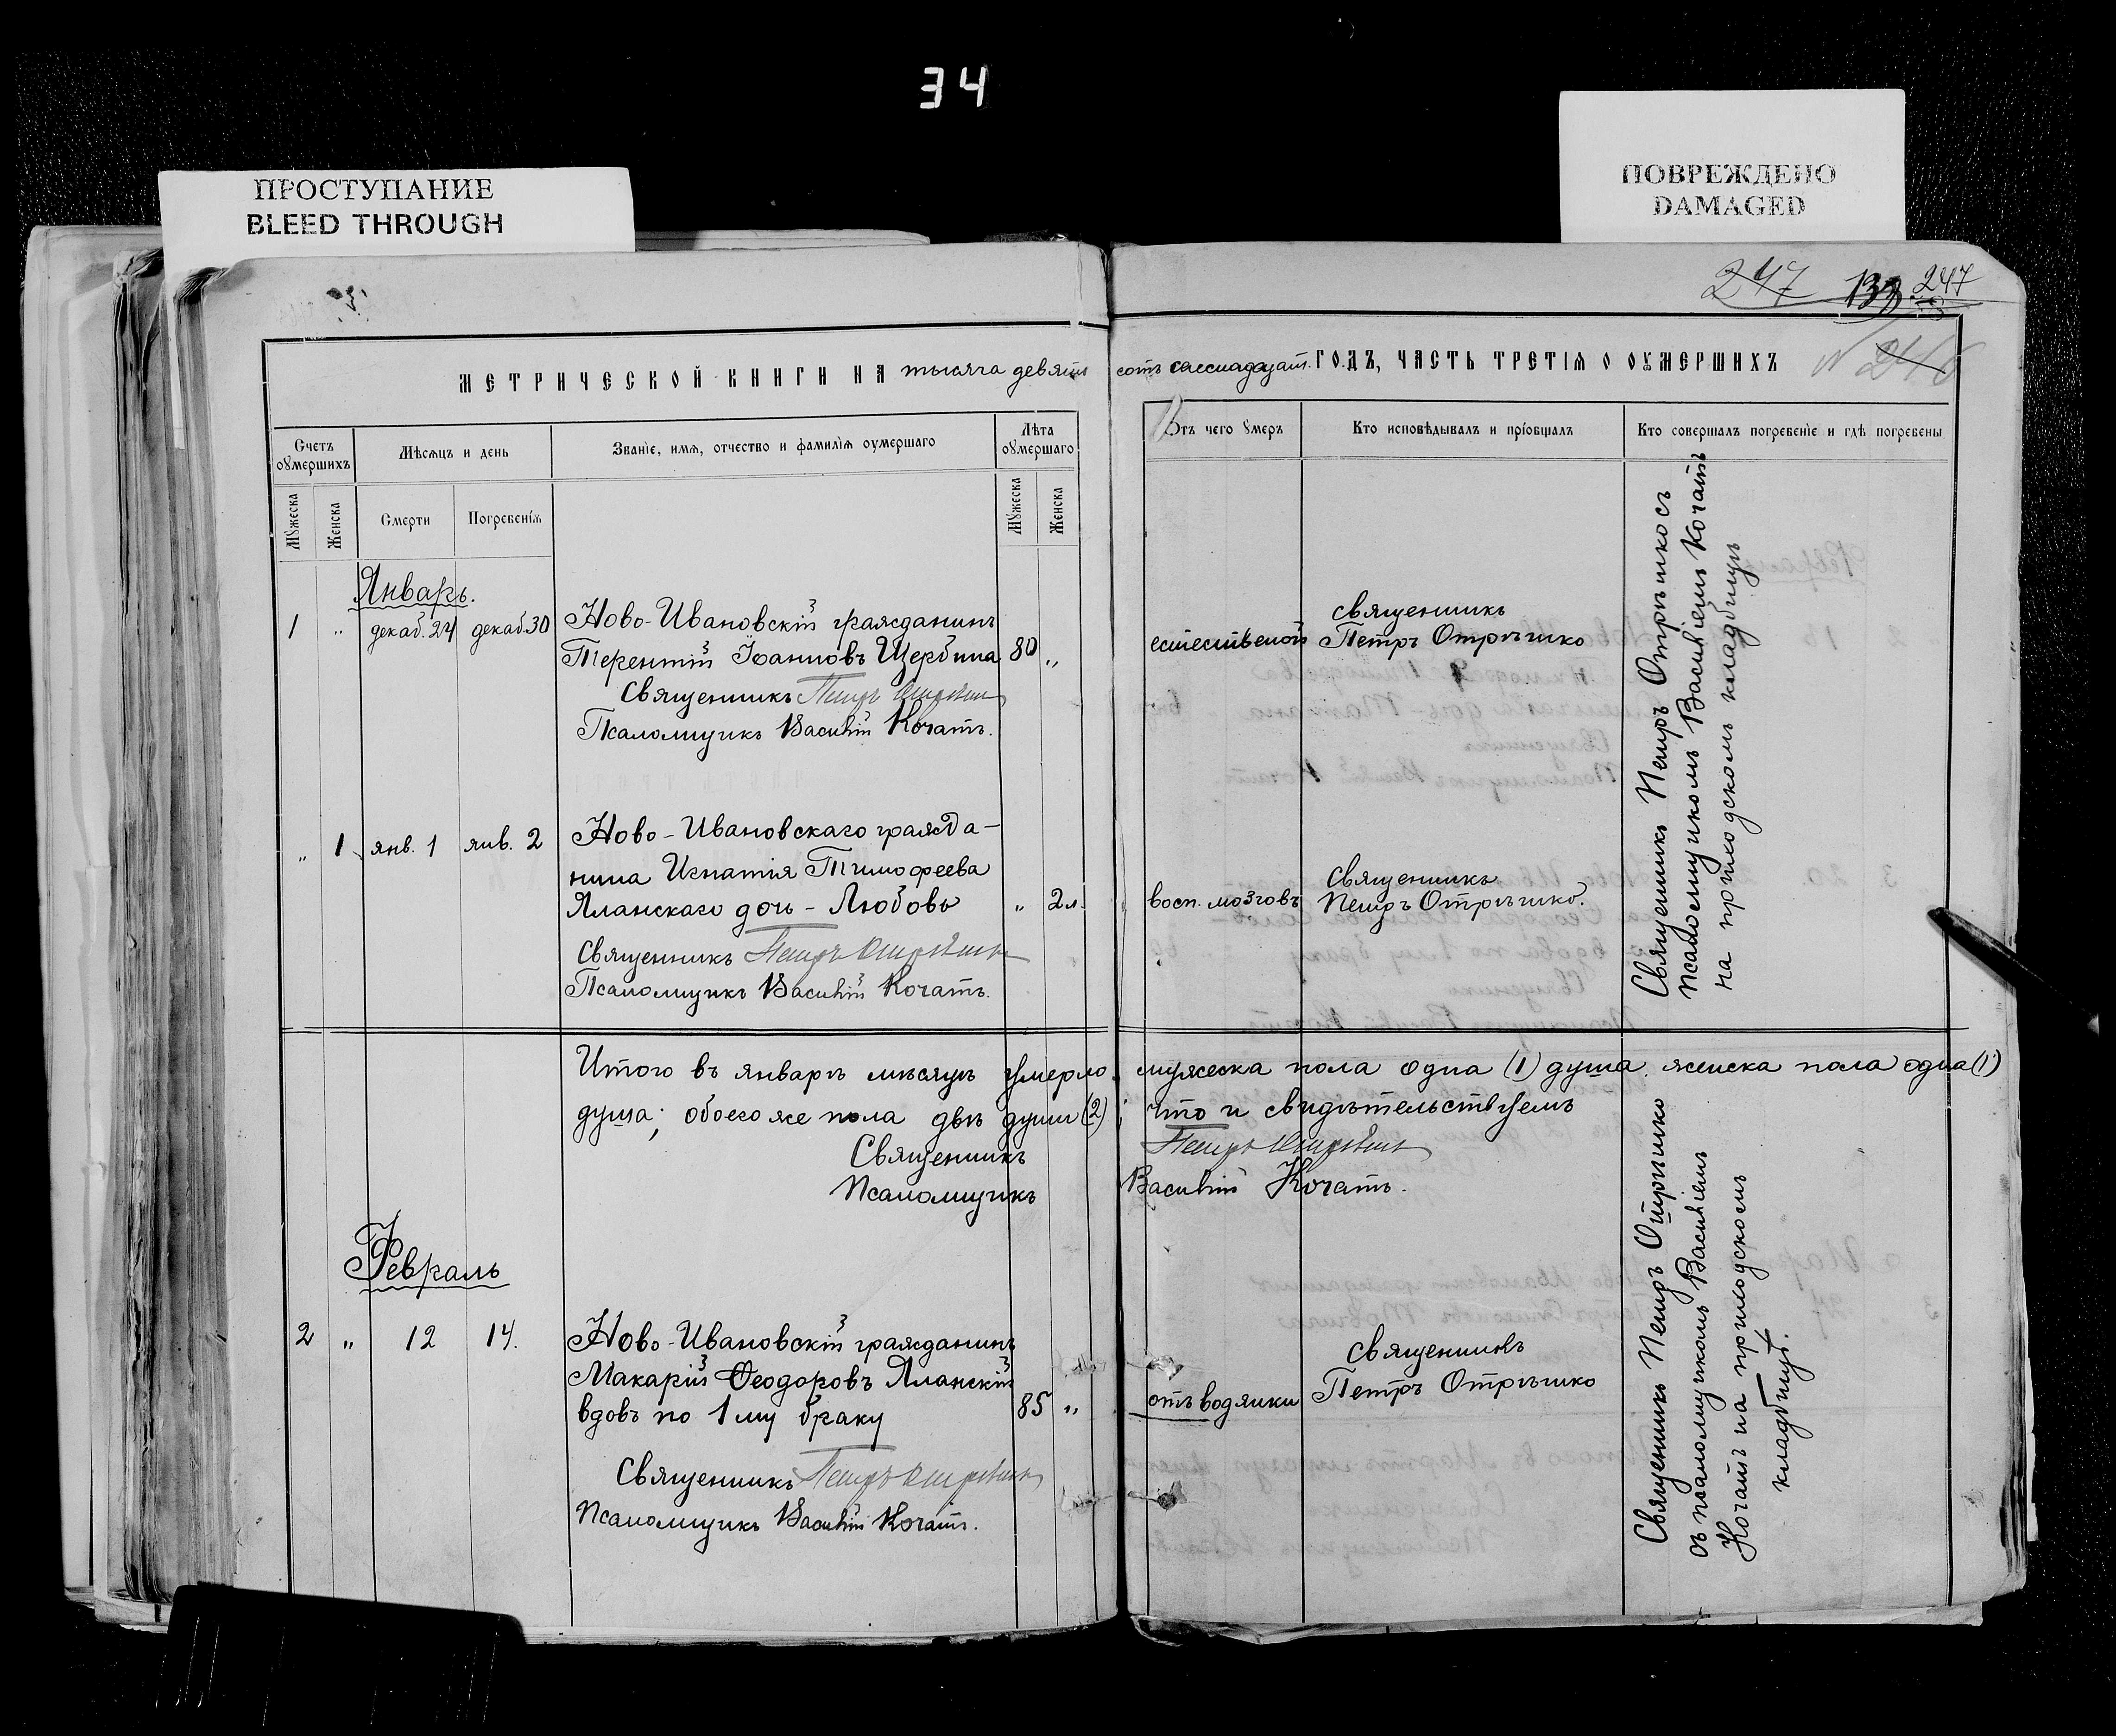 34
ПРОСТУПАНИЕ
BLEED THROUGH
ПОВРЕЖДЕНО
DAMAGED
247 247
МЕТРИЧЕСКОЙ КНИГИ НА тысяча девять
Счетъ оумершихъ
Мѣсяцъ и день
Званіе, имя, отчество и фамилія оумершаго
Лѣта оумершаго
Мужеска
Женска
Смерти
Погребенія
Мужеска
Женска
Январь.
1 „ декаб. 24 декаб. 30 Ново-Ивановскій гражданинъ
Терентій Іоанновъ Щербина 80 „
Священникъ Петръ Отрѣшко
Псаломщикъ Василій Кочатъ.
„ 1 янв. 1 янв. 2 Ново-Ивановскаго гражда-
нина Игнатія Тимофеева
Яланскаго дочь - Любовь „ 2 л.
Священникъ Петръ Отрѣшко
Псаломщикъ Василій Кочатъ.
Итого въ январѣ мѣсяцѣ умерло
душа; обоего же пола двѣ души (2)
Священникъ
Псаломщикъ
Февраль
2 „ 12 14. Ново-Ивановскій гражданинъ
Макарій Ѳеодоровъ Яланскій
вдовъ по 1му браку 85 „
Священникъ Петръ Отрѣшко
Псаломщикъ Василій Кочатъ.
сотъ ГОДЪ, ЧАСТЬ ТРЕТІЯ О ОУМЕРШИХЪ
Отъ чего умеръ
Кто исповѣдывалъ и пріобщалъ
Кто совершалъ погребеніе и гдѣ погребены
священникъ
естественой Петръ Отрѣшко
священникъ
восп. мозговъ Петръ Отрѣшко.
Священникъ Петръ Отрѣшко съ
псаломщикомъ Василіемъ Кочатъ
на приходскомъ кладбищѣ
мужеска пола одна (1) душа. женска пола одна (1)
что и свидѣтельствуемъ
Петръ Отрѣшко
Василій Кочатъ.
священникъ
отъ водянки Петръ Отрѣшко
Священникъ Петръ Отрѣшко
съ псаломщикомъ Василіемъ
Кочатъ на приходскомъ
кладбищѣ.